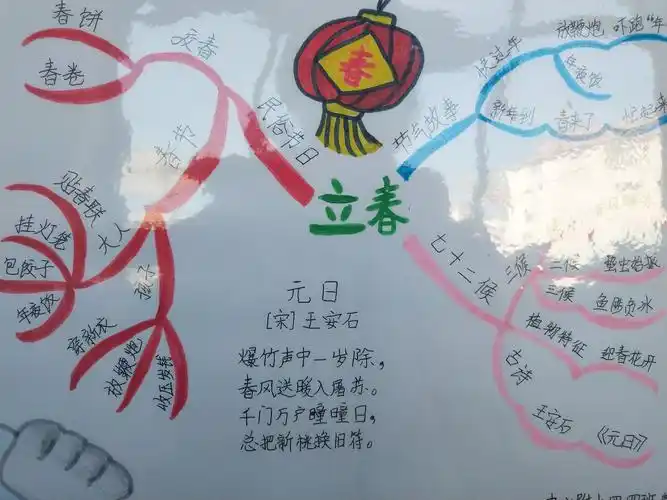 春饼
春卷
咬春
春
民俗节日
春节
贴春联
挂灯笼
包饺子
年夜饭
大人
孩子
穿新衣
放鞭炮
收压岁钱
立春
节气故事
快过年
放鞭炮,吓跑"年
年夜饭
新年到
春来了
忙起来
七十二候
三候
二候
蛰虫始振
三候
鱼陟负冰
植物特征
迎春花开
古诗
王安石
《元日》
元日
[宋]王安石
爆竹声中一岁除,
春风送暖入屠苏。
千门万户曈曈日,
总把新桃换旧符。